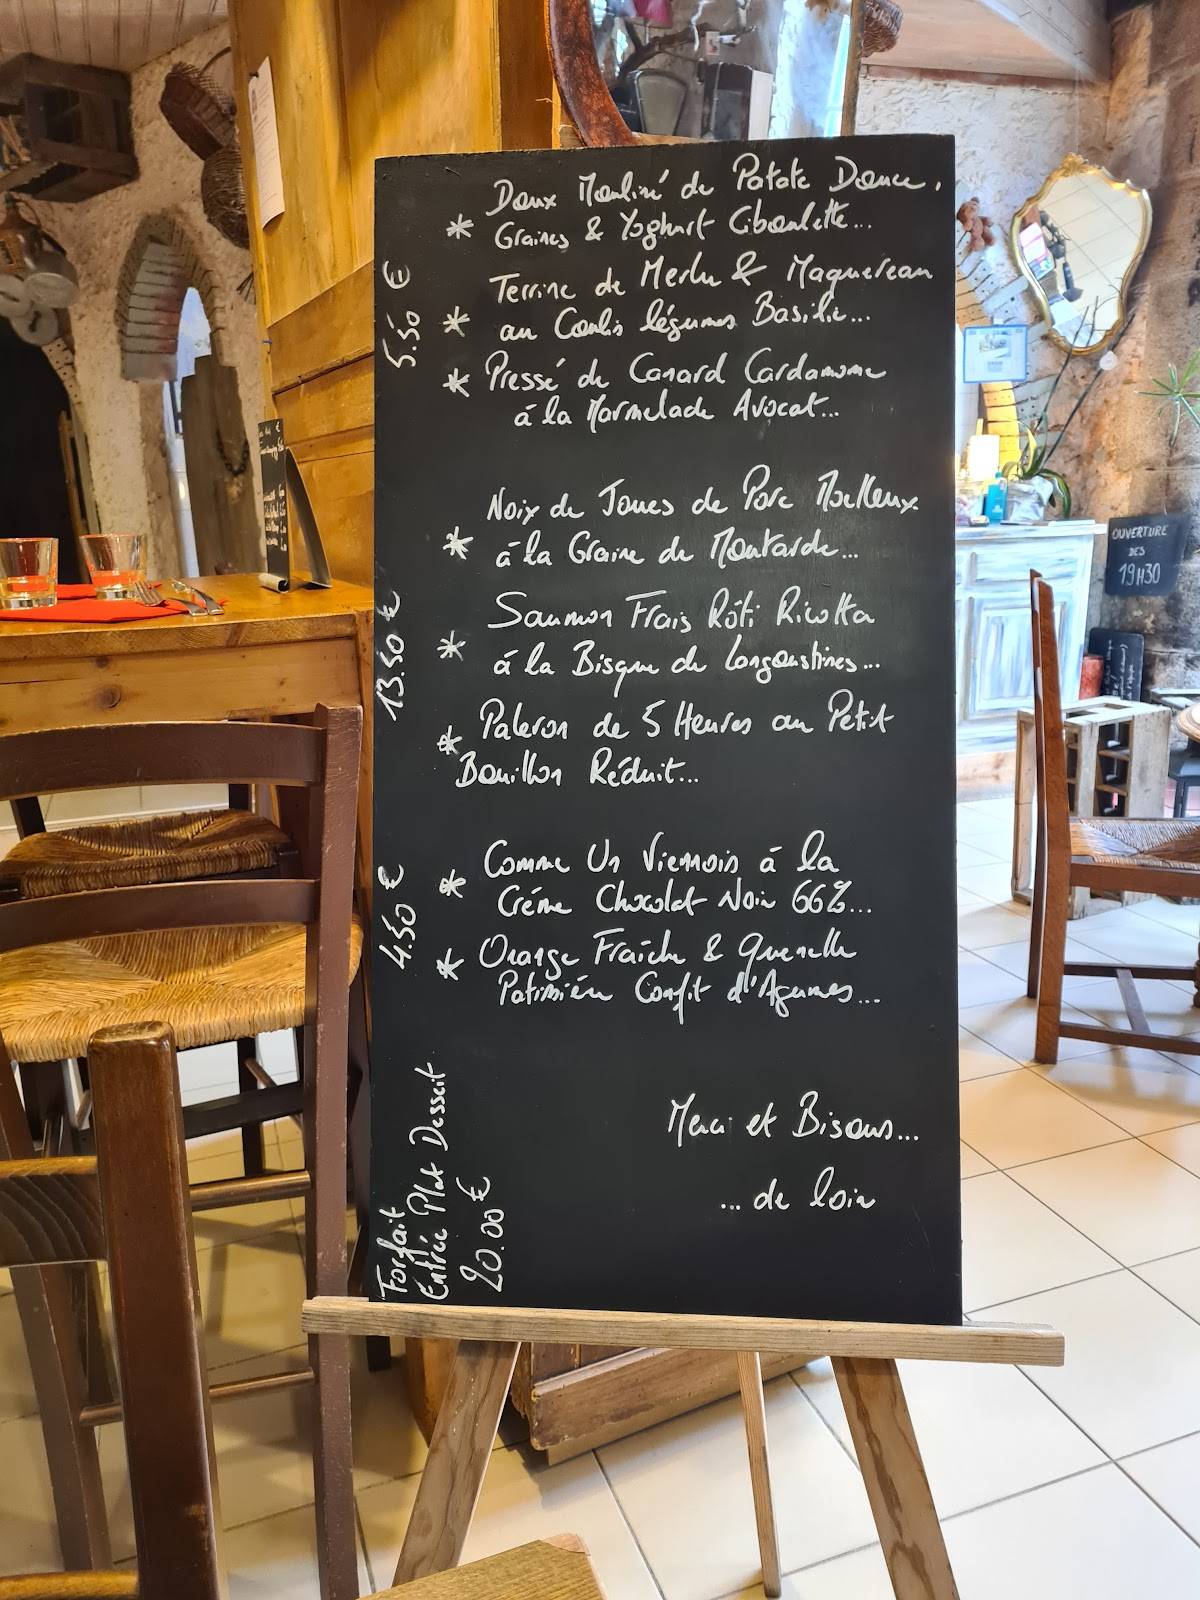 Doux Mouliné de Patate Douce,
* Graines & Yoghurt Ciboulette...
5.50 €
Terrine de Merlu & Maquereau
* au Coulis légumes Basilic...
* Pressé de Canard Cardamome
à la Marmelade Avocat...
Noix de Joues de Porc Moelleux
* à la Graine de Moutarde...
13.50 €
Saumon Frais Rôti Ricotta
* à la Bisque de Langoustines...
* Paleron de 5 Heures au Petit
Bouillon Réduit...
4.50 €
* Comme Un Viennois à la
Crème Chocolat Noir 66%...
* Orange Fraîche & Quenelle
Patissière Confit d'Agrumes...
Forfait
Entrée Plat Dessert
20.00 €
Merci et Bisous...
... de loin
OUVERTURE
DES
19H30